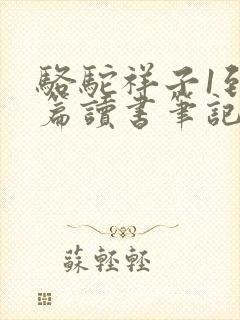 駱駝祥子1到
篇讀書筆記
蘇輕輕